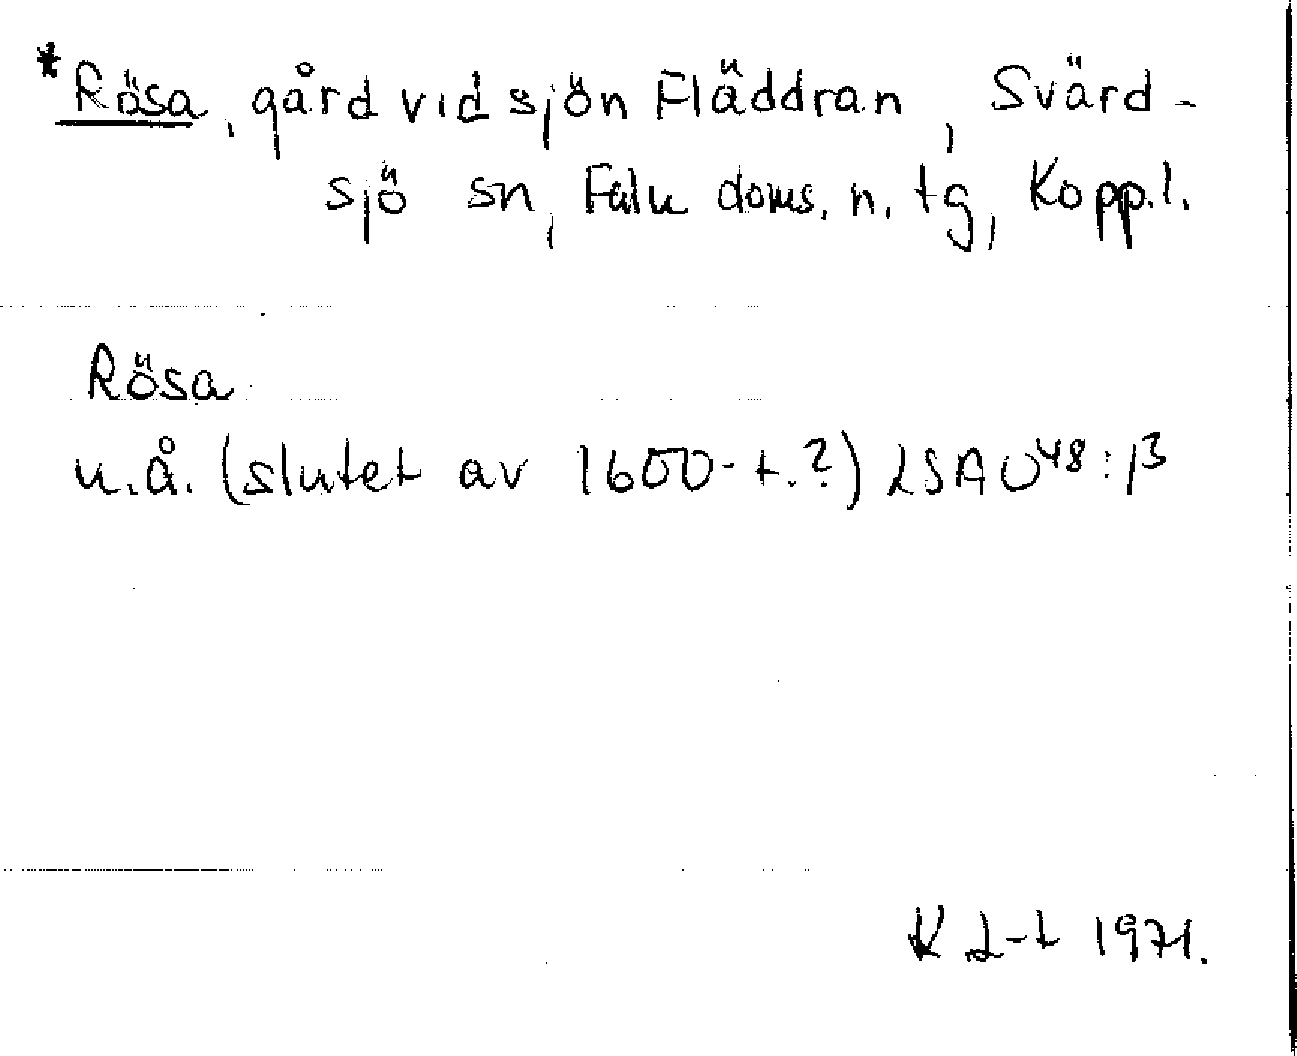 *Rösa, gård vid sjön Fläddran, Svärd-
sjö sn, Falu doms. n. tg, Kopp.l.
Rösa
u.å. (slutet av 1600-t.?) LSA U48:13
K L-t 1971.